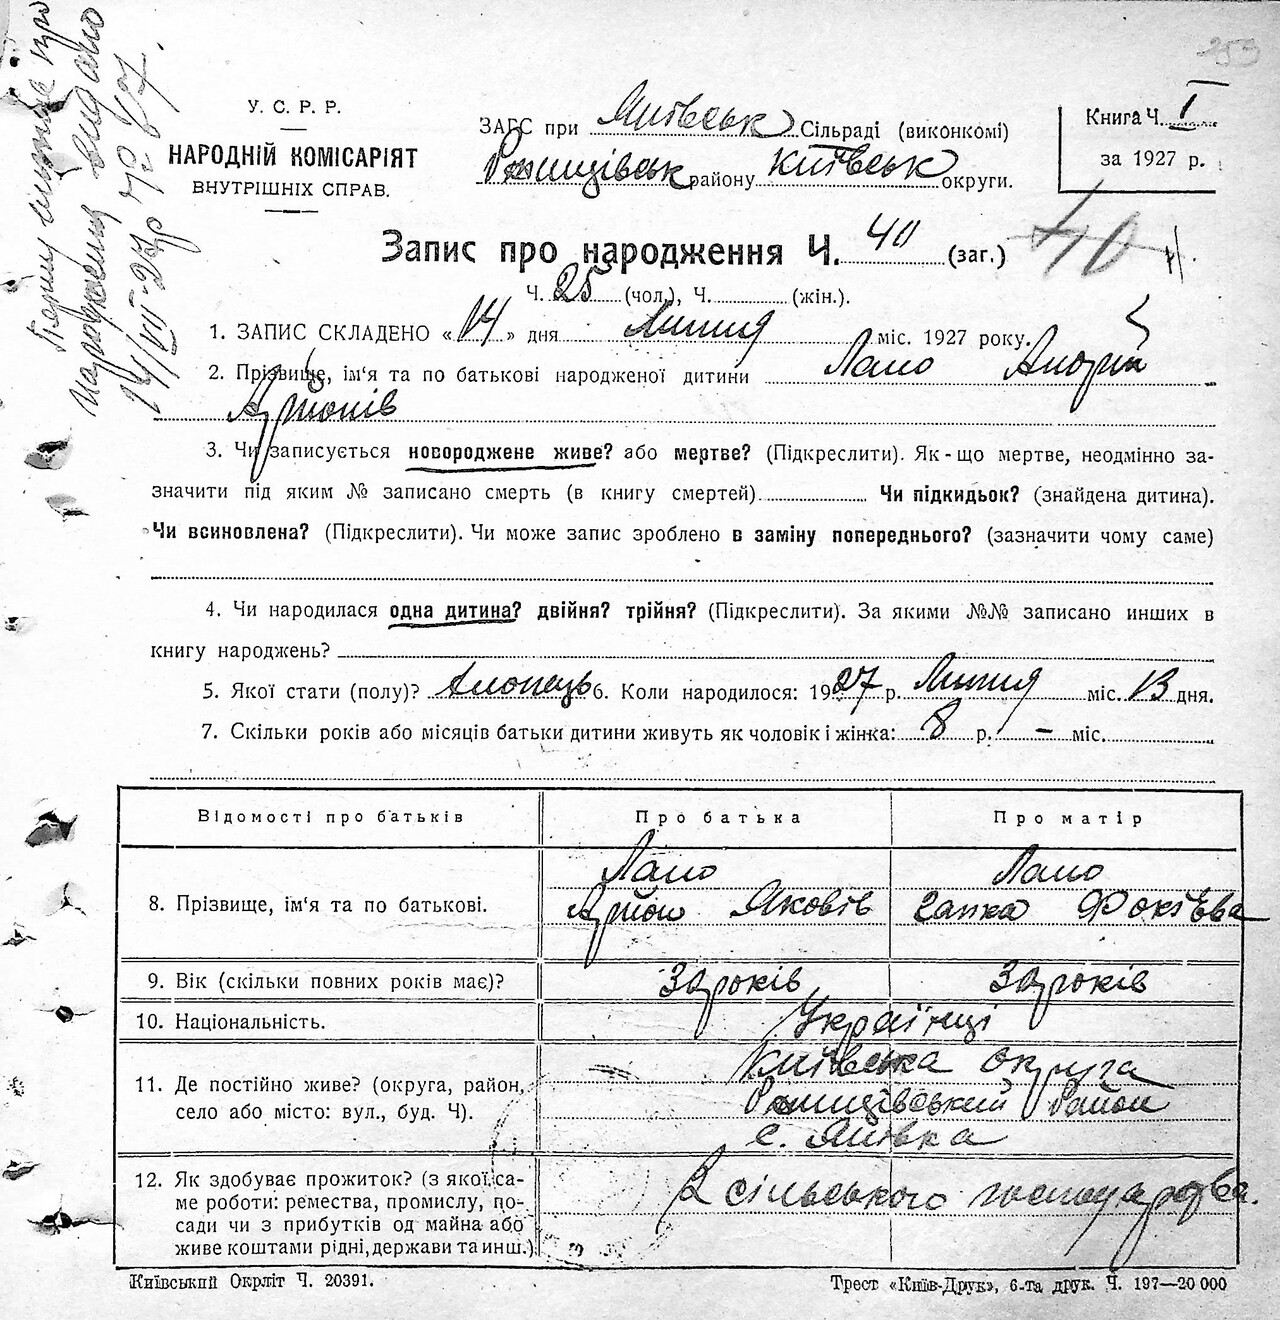 253
У. С. Р. Р.
НАРОДНІЙ КОМІСАРІЯТ
ВНУТРІШНІХ СПРАВ.
ЗАГС при Сільраді (виконкомі)
району Київськ округи.
Книга Ч. I
за 1927 р.
Запис про народження Ч. 40 (заг.) 40
Ч. 25 (чол.), Ч. (жін.).
1. ЗАПИС СКЛАДЕНО «14» дня Липня міс. 1927 року.
2. Прізвище, ім'я та по батькові народженої дитини Лапо Андрій
Арйонів
3. Чи записується новороджене живе? або мертве? (Підкреслити). Як-що мертве, неодмінно за-
значити під яким № записано смерть (в книгу смертей). Чи підкидьок? (знайдена дитина).
Чи всиновлена? (Підкреслити). Чи може запис зроблено в заміну попереднього? (зазначити чому саме)
4. Чи народилася одна дитина? двійня? трійня? (Підкреслити). За якими №№ записано инших в
книгу народжень?
5. Якої стати (полу)? Хлопець 6. Коли народилося: 1927 р. Липня міс. 13 дня.
7. Скільки років або місяців батьки дитини живуть як чоловік і жінка: 8 р. – міс.
Відомості про батьків Про батька Про матір
Лапо Лапо
8. Прізвище, ім'я та по батькові. Арйон Яковів Гапка Фокієва
9. Вік (скільки повних років має)? років років
10. Національність. Українці
Київська округа
11. Де постійно живе? (округа, район,
село або місто: вул., буд. Ч). район
с.
12. Як здобуває прожиток? (з якої са-
ме роботи: ремества, промислу, по- З сільського господарства.
сади чи з прибутків од майна або
живе коштами рідні, держави та инш.)
Київський Окрліт Ч. 20391. Трест «Київ-Друк», 6-та друк. Ч. 197—20 000